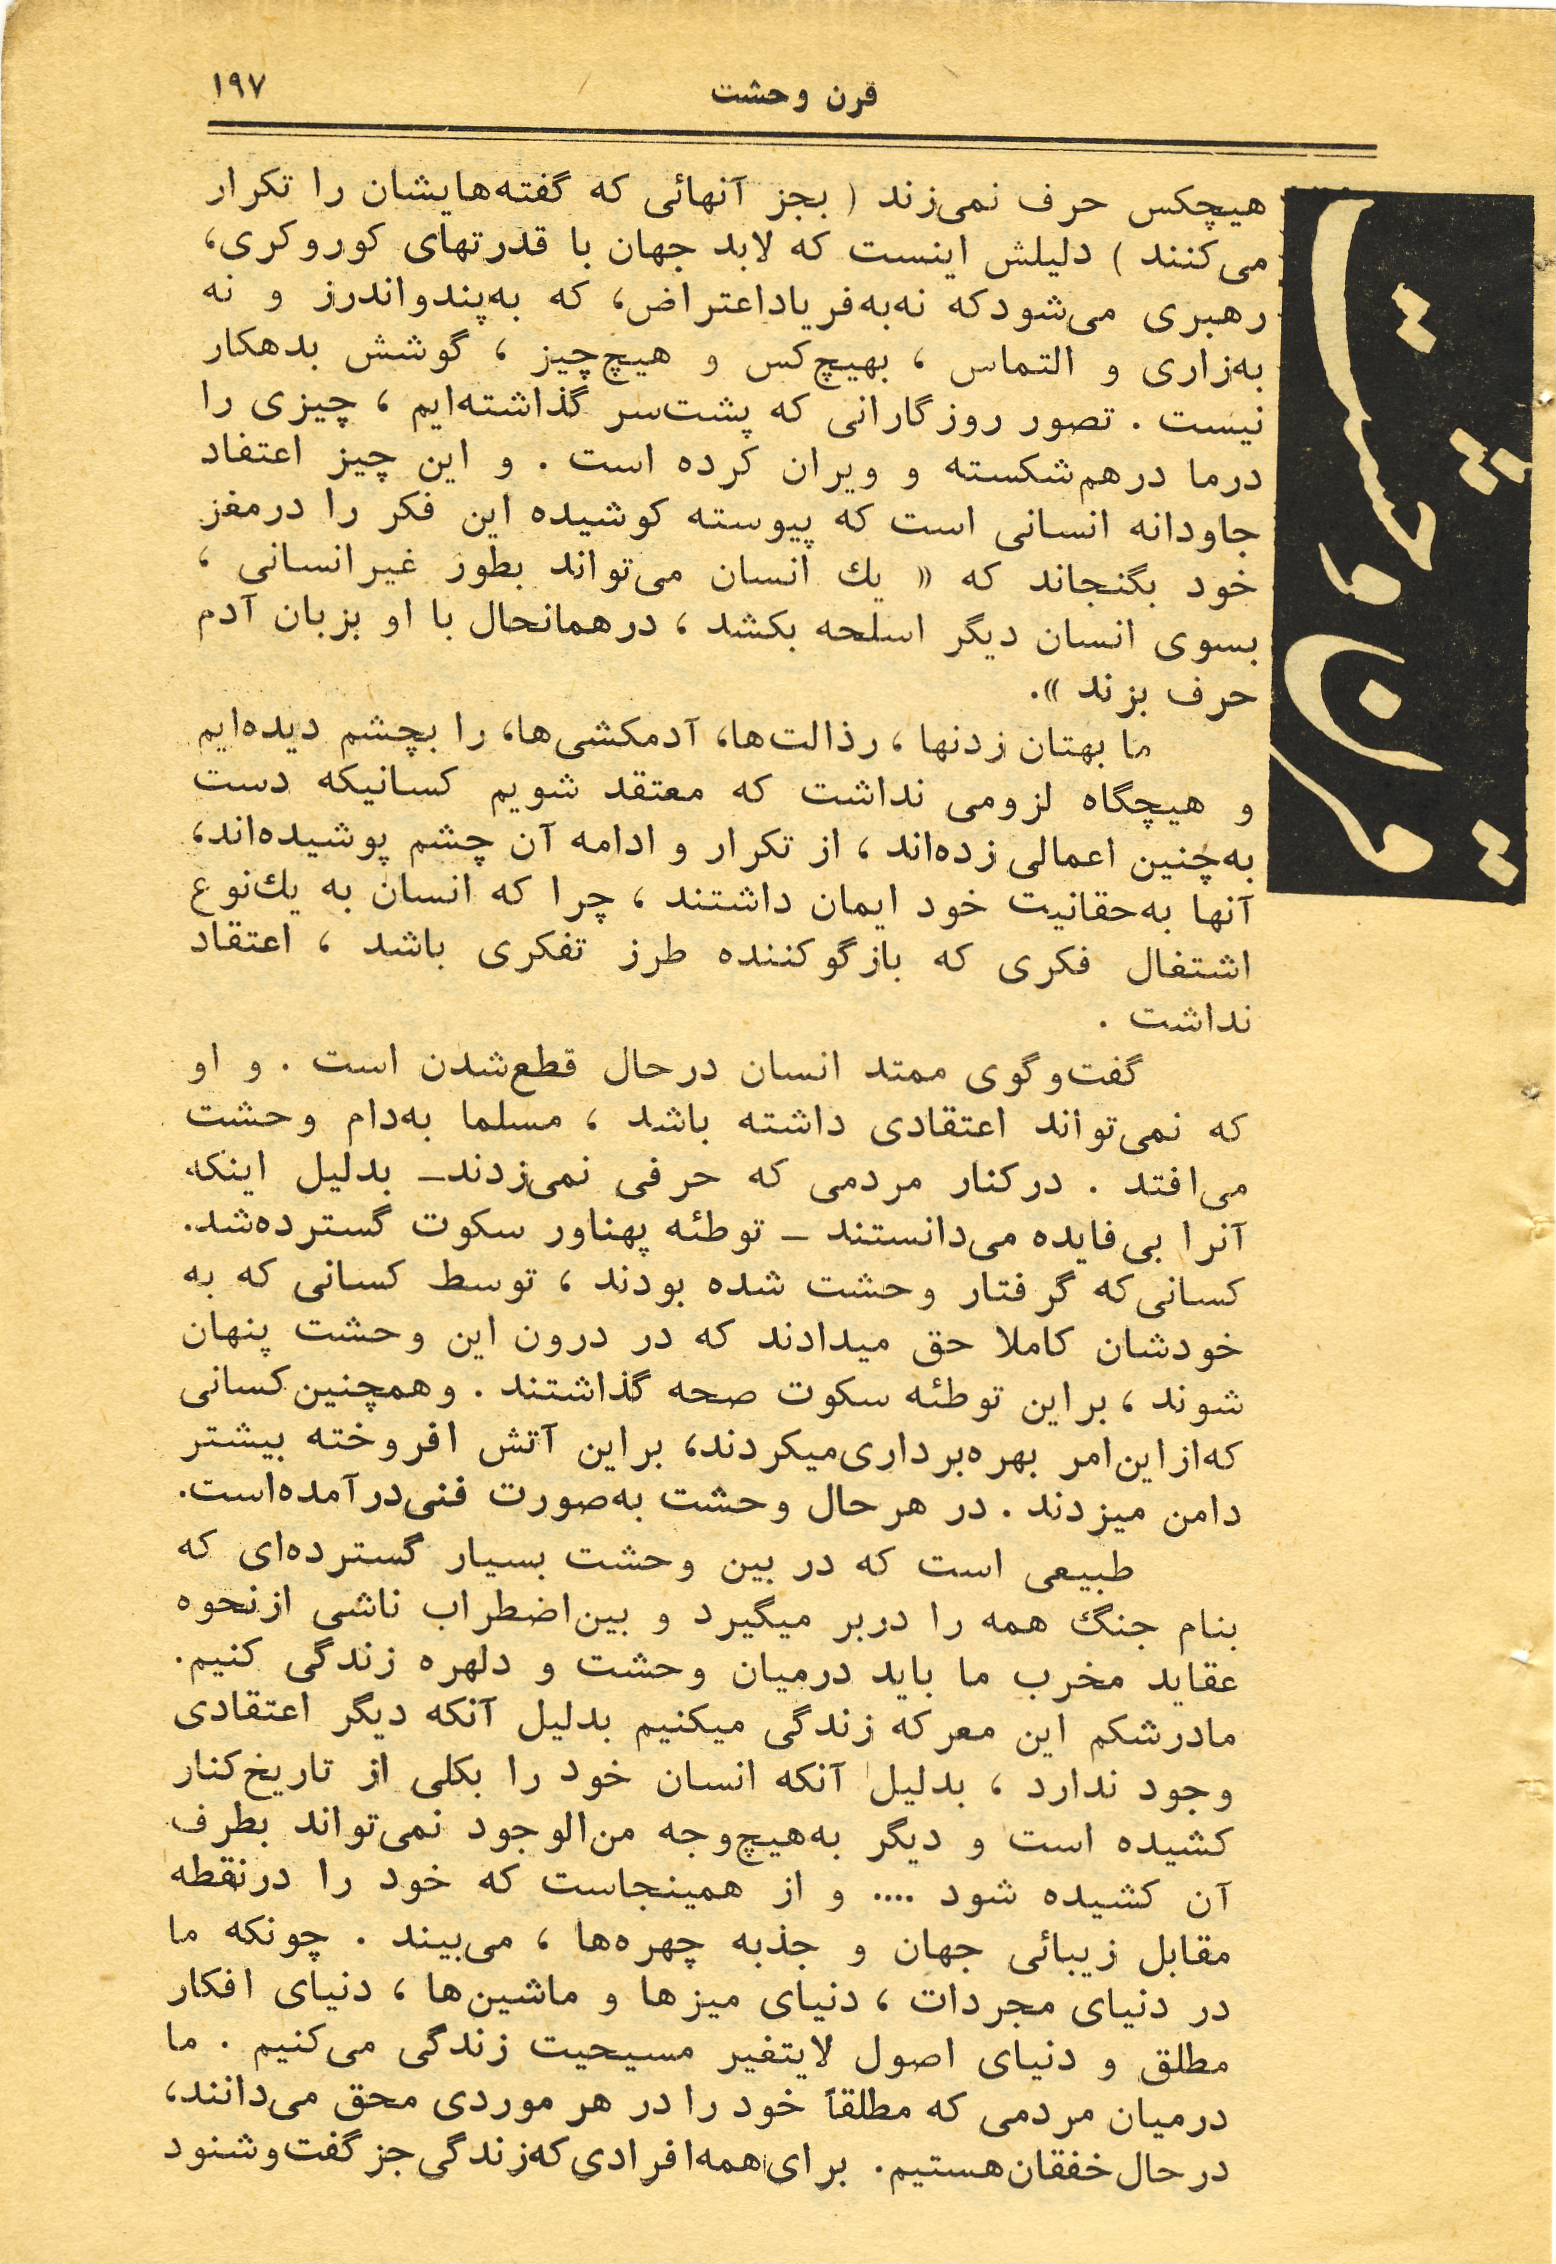 قرن وحشت
۱۹۷
قرن وحشت
هیچکس حرف نمی‌زند ( بجز آنهائی که گفته‌هایشان را تکرار
می‌کنند ) دلیلش اینست که لابد جهان با قدرتهای کوروکری،
رهبری می‌شودکه نه‌به‌فریاداعتراض، که به‌پندواندرز و نه
به‌زاری و التماس ، بهیچ‌کس و هیچ‌چیز ، گوشش بدهکار
نیست . تصور روزگارانی که پشت‌سر گذاشته‌ایم ، چیزی را
درما درهم‌شکسته و ویران کرده است . و این چیز اعتفاد
جاودانه انسانی است که پیوسته کوشیده این فکر را درمغز
خود بگنجاند که « یك انسان می‌تواند بطور غیرانسانی ،
بسوی انسان دیگر اسلحه بکشد ، درهمانحال با او بزبان آدم
حرف بزند ».
ما بهتان زدنها ، رذالت‌ها، آدمکشی‌ها، را بچشم دیده‌ایم
و هیچگاه لزومی نداشت که معتقد شویم کسانیکه دست
به‌چنین اعمالی زده‌اند ، از تکرار و ادامه آن چشم پوشیده‌اند،
آنها به‌حقانیت خود ایمان داشتند ، چرا که انسان به یك‌نوع
اشتغال فکری که بازگوکننده طرز تفکری باشد ، اعتقاد
نداشت .
گفت‌وگوی ممتد انسان درحال قطع‌شدن است . و او
که نمی‌تواند اعتقادی داشته باشد ، مسلما به‌دام وحشت
می‌افتد . درکنار مردمی که حرفی نمی‌زدند_ بدلیل اینکه
آنرا بی‌فایده می‌دانستند _ توطئه پهناور سکوت گسترده‌شد.
کسانی‌که گرفتار وحشت شده بودند ، توسط کسانی که به
خودشان کاملا حق میدادند که در درون این وحشت پنهان
شوند ، براین توطئه سکوت صحه گذاشتند . وهمچنین‌کسانی
که‌ازاین‌امر بهره‌برداری‌میکردند، براین آتش افروخته بیشتر
دامن میزدند . در هرحال وحشت به‌صورت فنی‌درآمده‌است.
طبیعی است که در بین وحشت بسیار گسترده‌ای که
بنام جنگ همه را دربر میگیرد و بین‌اضطراب ناشی ازنحوه
عقاید مخرب ما باید درمیان وحشت و دلهره زندگی کنیم.
مادرشکم این معرکه زندگی میکنیم بدلیل آنکه دیگر اعتقادی
وجود ندارد ، بدلیل آنکه انسان خود را بکلی از تاریخ‌کنار
کشیده است و دیگر به‌هیچ‌وجه من‌الوجود نمی‌تواند بطرف
آن کشیده شود .... و از همینجاست که خود را درنقطه
مقابل زیبائی جهان و جذبه چهره‌ها ، می‌بیند . چونکه ما
در دنیای مجردات ، دنیای میزها و ماشین‌ها ، دنیای افکار
مطلق و دنیای اصول لایتغیر مسیحیت زندگی می‌کنیم . ما
درمیان مردمی که مطلقاً خود را در هر موردی محق می‌دانند،
درحال‌خفقان‌هستیم. برای‌همه‌افرادی‌که‌زندگی‌جزگفت‌وشنود